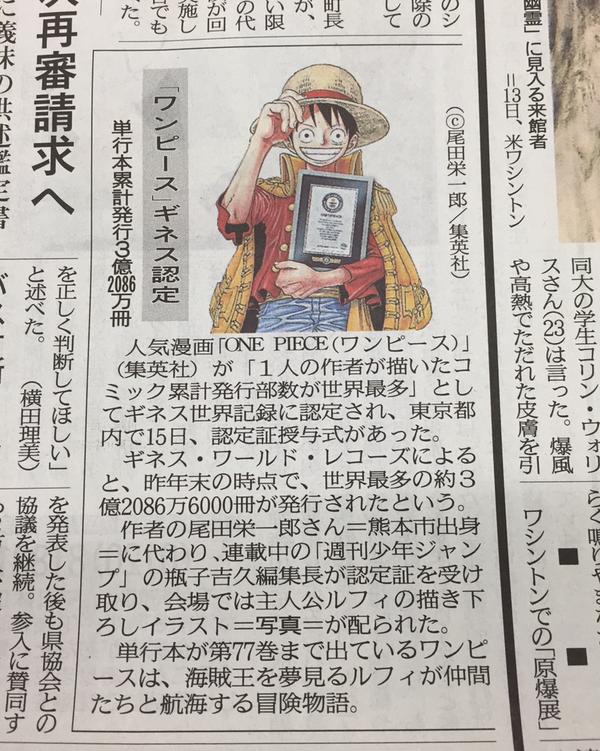 「ワンピース」ギネス認定
単行本累計発行3億2086万冊
(©尾田栄一郎/集英社)
人気漫画「ONE PIECE(ワンピース)」
(集英社)が「1人の作者が描いたコ
ミック累計発行部数が世界最多」とし
てギネス世界記録に認定され、東京都
内で15日、認定証授与式があった。
ギネス・ワールド・レコーズによる
と、昨年末の時点で、世界最多の約3
億2086万6000冊が発行されたという。
作者の尾田栄一郎さん=熊本市出身
=に代わり、連載中の「週刊少年ジャン
プ」の瓶子吉久編集長が認定証を受け
取り、会場では主人公ルフィの描き下
ろしイラスト=写真=が配られた。
単行本が第77巻まで出ているワンピ
ースは、海賊王を夢見るルフィが仲間
たちと航海する冒険物語。
幽霊」に見入る来館者
=13日、米ワシントン
同大の学生コリン・ウォリ
スさん(23)は言った。爆風
や高熱でただれた皮膚を引
ワシントンでの「原爆展」
町長
が、
い限
の代
再審請求へ
義妹の供述鑑定書
を正しく判断してほしい」
と述べた。(横田理美)
を発表した後も県協会との
協議を継続。参入に賛同す